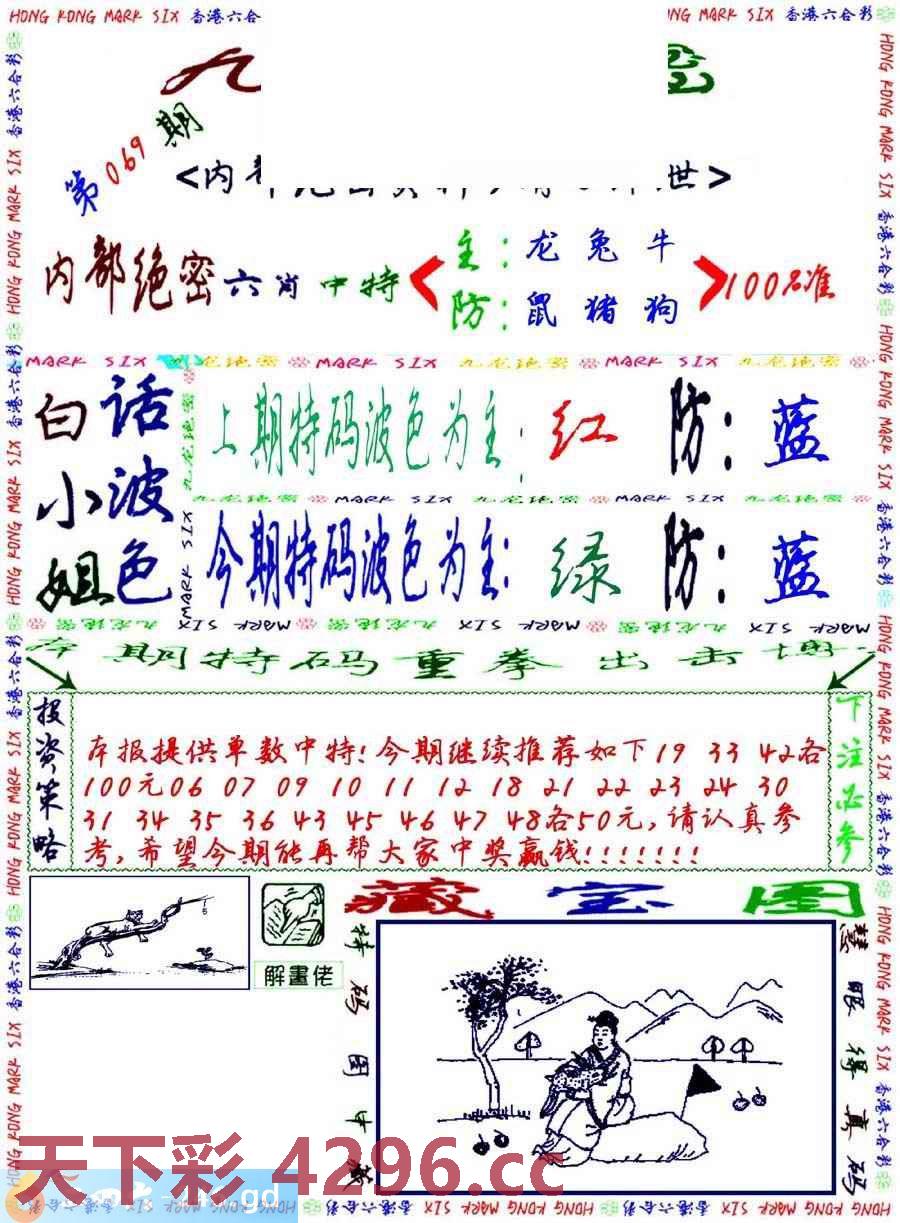 HONG KONG MARK SIX 香港六合彩
第069期
<内
世>
内部绝密六肖中特
主:龙兔牛
防:鼠猪狗
100%准
MARK SIX 九龙绝密 MARK SIX 九龙绝密 MARK SIX 九龙绝密
白话
小波
姐色
上期特码波色为主:红 防:蓝
九龙绝密 MARK SIX 九龙绝密 MARK SIX 九龙绝密
今期特码波色为主:绿 防:蓝
九龙绝密 MARK SIX 九龙绝密 MARK SIX 九龙绝密 MARK SIX
期特码重拳出击
投资策略
本报提供单数中特!今期继续推荐如下19 33 42各
100元06 07 09 10 11 12 18 21 22 23 24 30
31 34 35 36 43 45 46 47 48各50元,请认真参
考,希望今期能再帮大家中奖赢钱!!!!!!!
下注必参
解畫佬
藏宝图
特码图中藏
慧眼得真码
天下彩4296.cc
gd